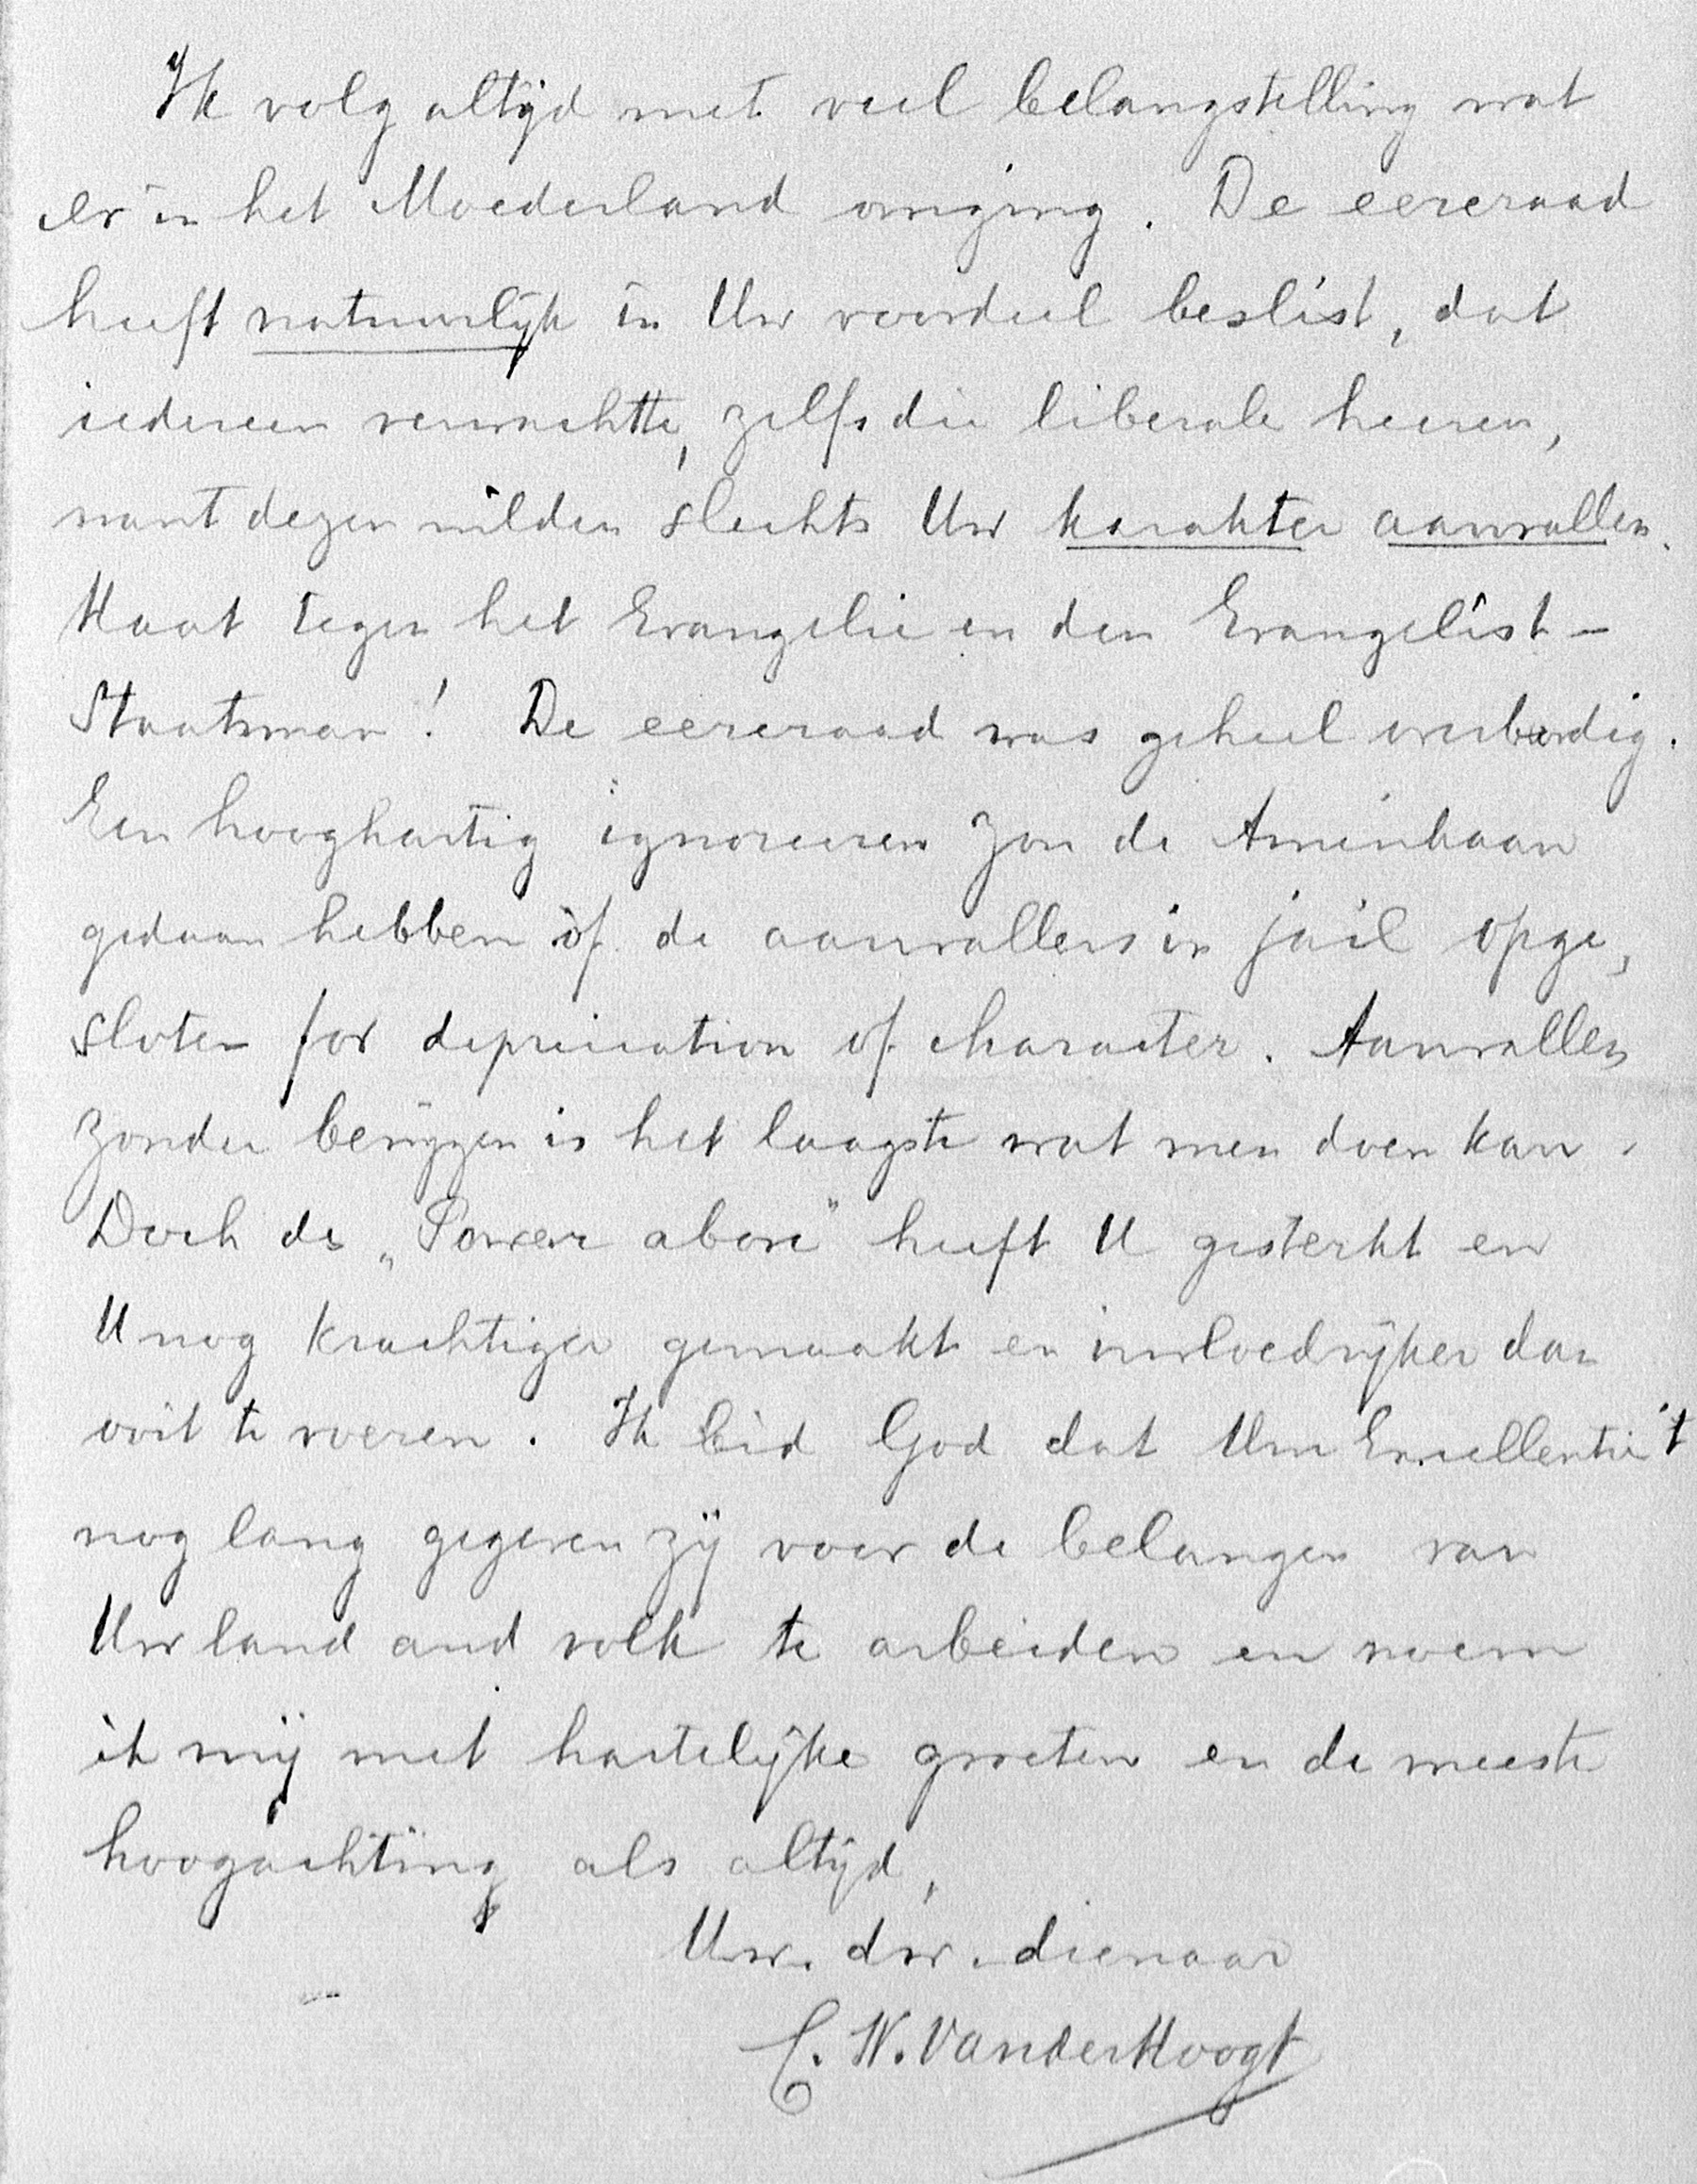 Ik volg altijd met veel belangstelling wat
er in het Moederland omging. De eereraad
heeft natuurlijk in Uw voordeel beslist, dat
iedereen verwachtte, zelfs die liberale heeren,
want dezen wilden slechts Uw karakter aanvallen.
Haat tegen het Evangelie en den Evangelist-
Staatsman! De eereraad was geheel overbodig.
Een hooghartig ignoreeren zou de Amerikaan
gedaan hebben òf de aanvallers in jail opge,
sloten for depreciation of character. Aanvallen
zonder bewijzen is het laagste wat men doen kan.
Doch de „Power above" heeft U gesterkt en
U nog krachtiger gemaakt en invloedrijker dan
ooit te voren. Ik bid God dat Uw Excellentie 't
nog lang gegeven zij voor de belangen van
Uw land and volk te arbeiden en noem
ik mij met hartelijke groeten en de meeste
hoogachting als altijd,
Uw. dw. dienaar
C. W. VanderHoogt